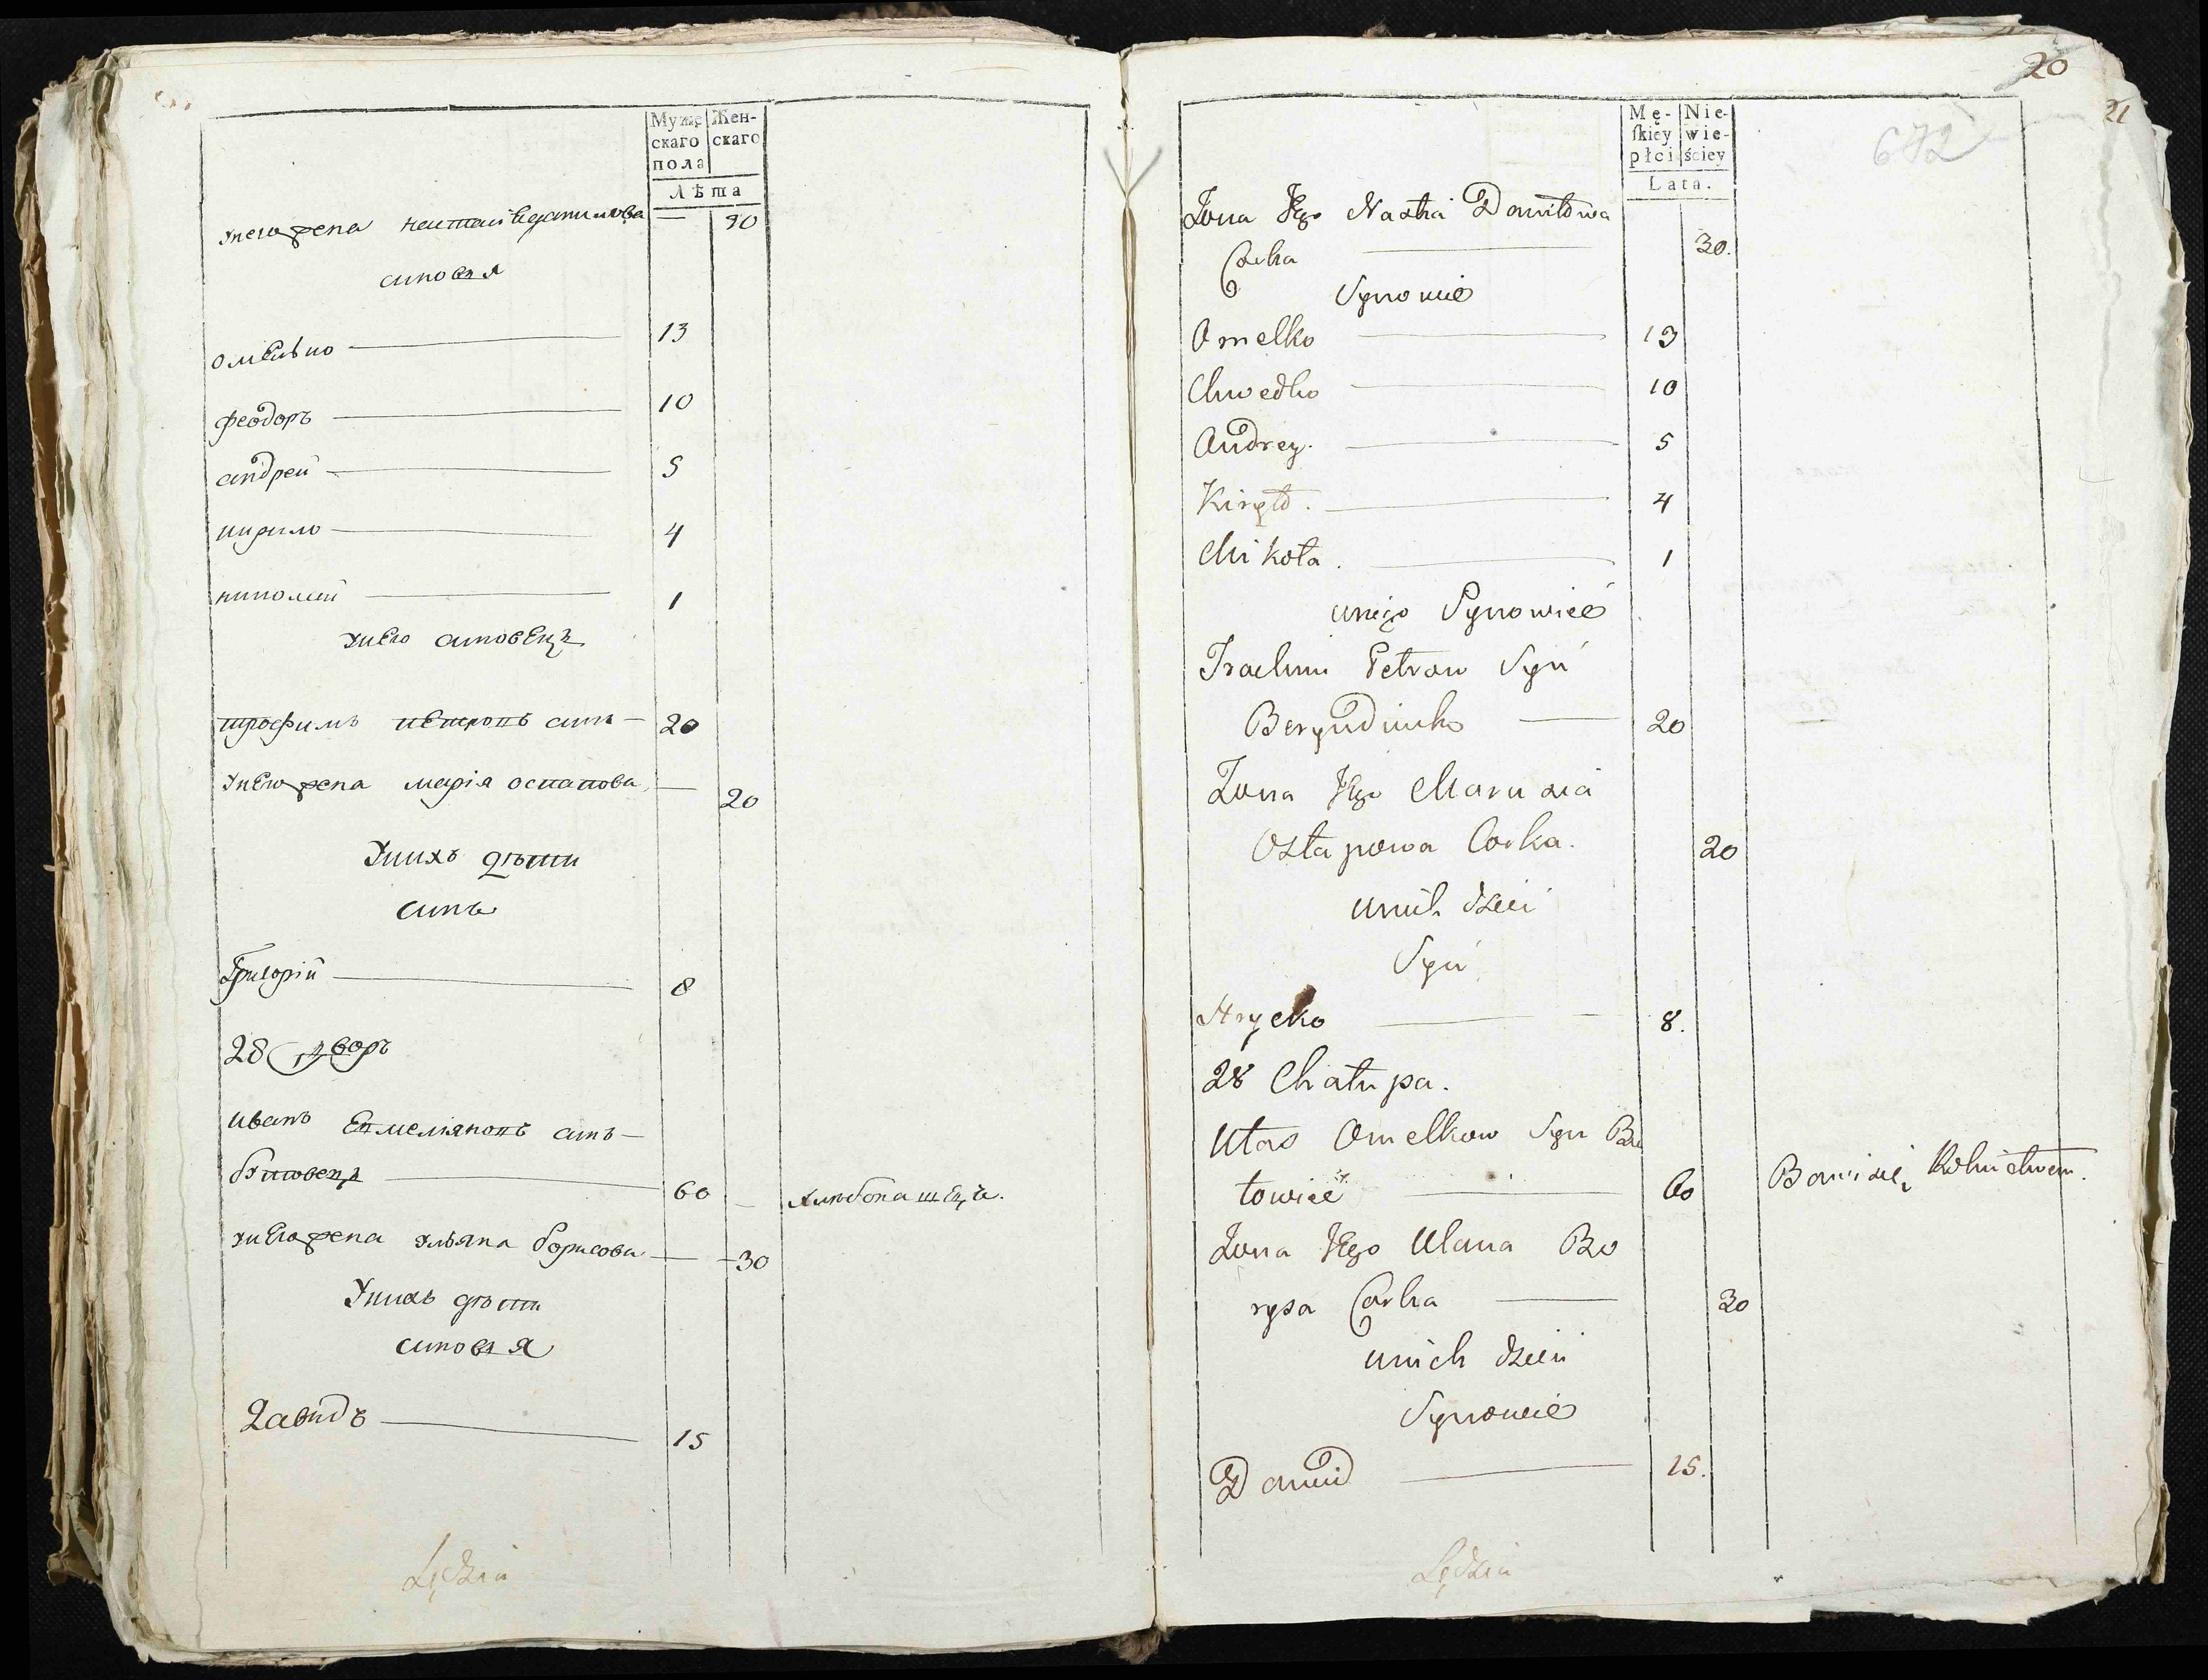 Муже Жен-
скаго скаго
пола
Лѣта
унего жена настасія данилова — 30
синовя
омелько — 13
феодоръ — 10
андрей — 5
кирило — 4
николай — 1
унего синовецъ
трофимъ петровъ синъ — 20
унего жена марія остапова — 20
Унихъ дѣти
синъ
Григорій — 8
28 Дворъ
иванъ Емеліяновъ синъ —
60 — хлѣбопашецъ.
унего жена уляна борисова — 30
Унихъ дѣти
синовя
Давидъ — 15
Lędzin
20
21
672
Mę- Nie-
ſkiey wie-
płci ściey
Lata.
Zona Jego Nastia Daniłowa
Corka — 30.
Synowie
Omelko — 13
Chwedko — 10
Andrey. — 5
Kiryło. — 4
Mikoła. — 1
uniego Synowiec
Trochim Petrow Syn
20
Zona Jego Marusia
Ostapowa Corka. 20
unich dzieci
Syn
Hrycko — 8.
28 Chałupa.
Omelkow Syn Bu
towiec — 60 Bawi się Rolnictwem.
Zona Jego Ulana Bo
rysa Corka — 30
unich dzieci
Synowie
Dawid — 15.
Lędzin